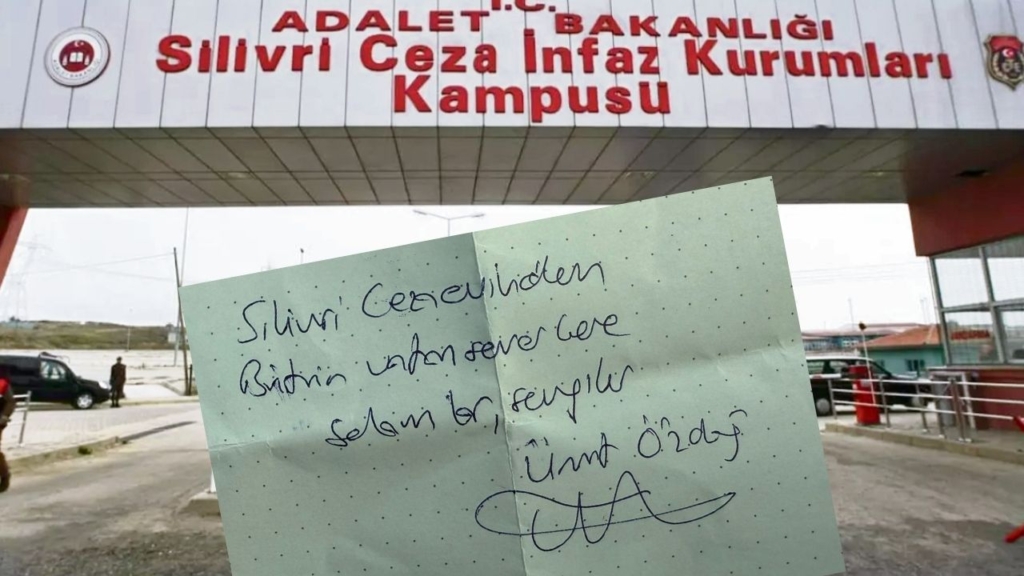 T.C.
ADALET BAKANLIĞI
Silivri Ceza İnfaz Kurumları
Kampusu
Silivri Cezaevinden
Bütün vatanseverlere
selamlar, sevgiler
Ümit Özdağ